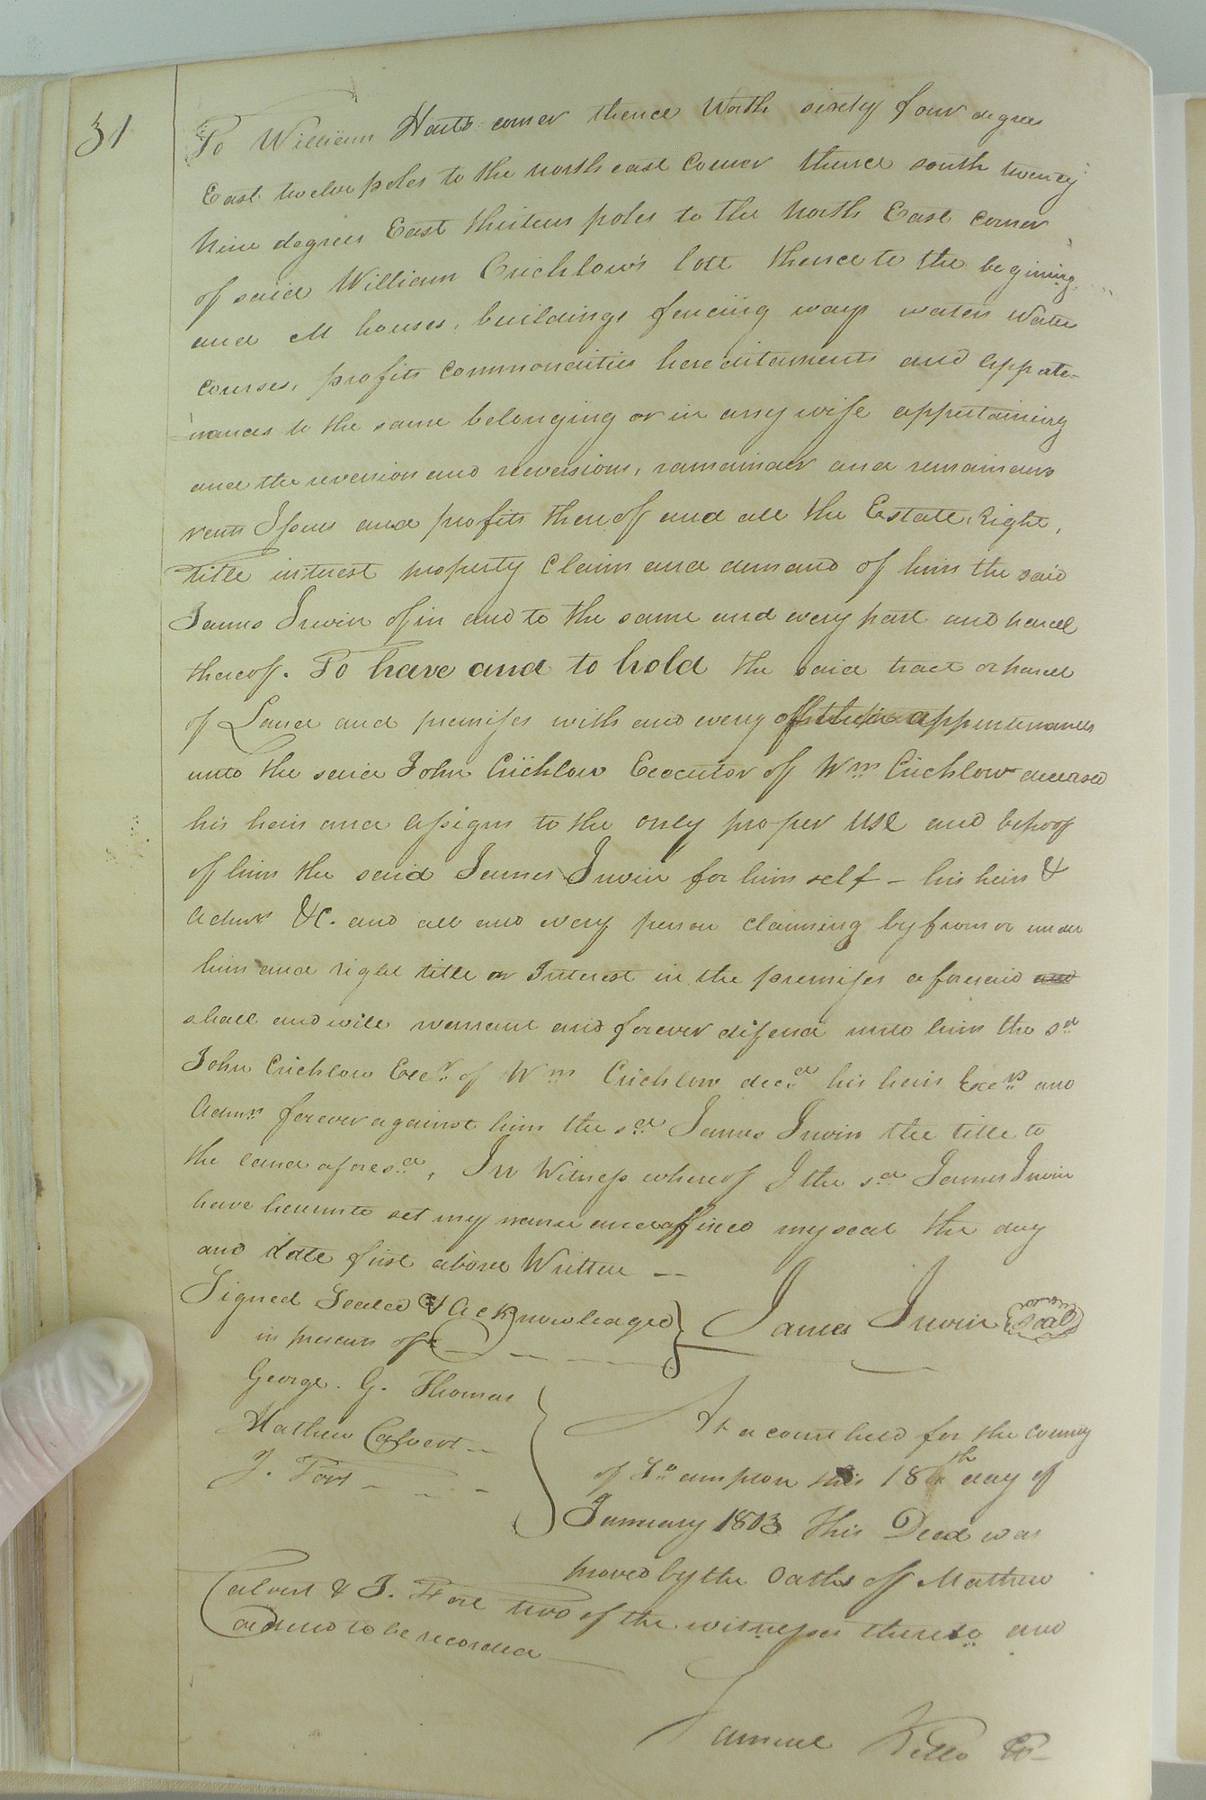 31
To William Harts corner thence North sixty four degrees
East twelve poles to the north east Corner thence south twenty
Nine degrees East thirteen poles to the North East corner
of said William Crichlow's lott thence to the begining
and all houses, buildings fencing ways waters Water
courses, profits commondities hereditaments and appate-
nances to the same belonging or in any wise appertaining
and the reversion and reversions, ramainder and remainders
rents Issues and profits thereoff and all the Estate, Right,
Title interest property Claim and demand of him the said
James Irwin of in and to the same and every part and parcel
thereof. To have and to hold the said tract or parcel
of Land and premises with and every of appurtenances
unto the said John Crichlow Executor of Wm Crichlow deceased
his heirs and assigns to the only proper use and behoof
of him the said James Irwin for him self - his heirs &
Admrs &C. and all and every person claiming by from or under
him and right title or Interest in the premises aforesaid and
shall and will warrant and forever difend unto him the sd
John Crichlow Exer of Wm Crichlow decd his heirs Exers and
Admrs forever against him the sd James Irwin the title to
the land aforesd, In Witness whereof I the sd James Irwin
have hereunto set my name and affixed my seal the day
and date first above Written —
Signed Sealed & Acknowledged } James Irwin Seal
in presence off
George. G. Thomas
Mathew Calvert
J. Fort
At a court held for the County
of So ampton this 18th day of
January 1803 This Deed was
proved by the Oaths off Mathew
Calvert & J. Fort two of the witnesses thereto and
ordered to be recorded
Samuel Kello Ck